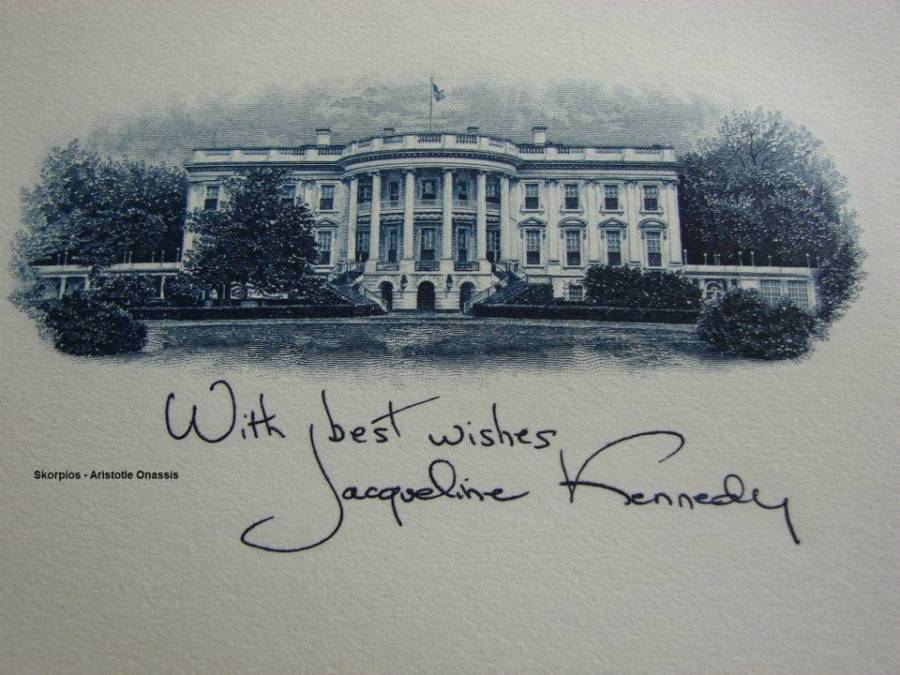 With best wishes
Skorpios - Aristotle Onassis
Jacqueline Kennedy